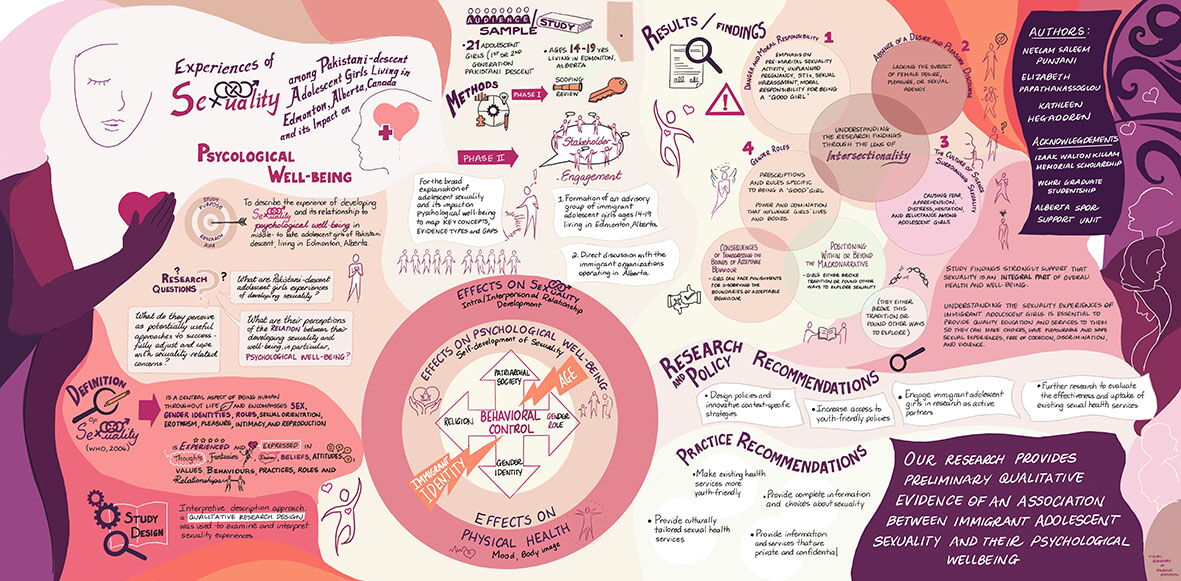 Experiences of
Sexuality
among Pakistani-descent
Adolescent Girls Living in
Edmonton, Alberta, Canada
and its Impact on
PSYCOLOGICAL
WELL-BEING
STUDY PURPOSE
RESEARCH AIM
To describe the experience of developing
Sexuality and its relationship to
psychological well-being in
middle- to late adolescent girls of Pakistani
descent, living in Edmonton, Alberta.
RESEARCH
QUESTIONS
What are Pakistani-descent
adolescent girls experiences
of developing sexuality?
What do they perceive
as potentially useful
approaches to success-
fully adjust and cope
with sexuality related
concerns?
What are their perceptions
of the RELATION between their
developing sexuality and
well-being, in particular,
PSYCHOLOGICAL WELL-BEING?
DEFINITION
OF
Sexuality
(WHO, 2006)
IS A CENTRAL ASPECT OF BEING HUMAN
THROUGHOUT LIFE AND ENCOMPASSES SEX,
GENDER IDENTITIES, ROLES, SEXUAL ORIENTATION,
EROTHISM, PLEASURE, INTIMACY, AND REPRODUCTION
IS EXPERIENCED AND EXPRESSED IN
Thoughts, Fantasies, Desires, BELIEFS, ATTITUDES,
VALUES, BEHAVIOURS, PRACTICES, ROLES AND
Relationships
STUDY
DESIGN
Interpretive description approach,
a QUALITATIVE RESEARCH DESIGN
was used to examine and interpret
sexuality experiences.
AUDIENCE/
SAMPLE
STUDY
• 21 ADOLESCENT
GIRLS (1ST OR 2ND
GENERATION
PAKISTANI DESCENT
• AGES 14-19 YRS
LIVING IN EDMONTON,
ALBERTA
METHODS
PHASE I
SCOPING
REVIEW
PHASE II
Stakeholder
Engagement
For the broad
explanation of
adolescent sexuality
and its impact on
Pyschological well-being
to map KEY CONCEPTS,
EVIDENCE TYPES and GAPS
1. Formation of an advisory
group of immigrant
adolescent girls ages 14-19
living in Edmonton, Alberta.
2. Direct discussion with the
immigrant organizations
operating in Alberta.
EFFECTS ON SEXUALITY
Intra/Interpersonal Relationship
Development
EFFECTS ON PSYCHOLOGICAL WELL-BEING
Self-development of Sexuality
PATRIARCHAL
SOCIETY
AGE
RELIGION
BEHAVIORAL
CONTROL
GENDER
ROLE
IMMIGRANT
IDENTITY
GENDER
IDENTITY
EFFECTS ON
PHYSICAL HEALTH
Mood, Body image
RESULTS / FINDINGS
1
DANGER AND MORAL RESPONSIBILITY
EMPHASIS ON
PRE-MARITAL SEXUALITY
ACTIVITY, UNPLANNED
PREGNANCY, STI'S, SEXUAL
HARASSMENT, MORAL
RESPONSIBILITY FOR BEING
A "GOOD GIRL"
2
ABSENCE OF A DESIRE AND PLEASURE DISCOURSE
LACKING THE SUBJECT
OF FEMALE DESIRE,
PLEASURE, OR SEXUAL
AGENCY.
UNDERSTANDING
THE RESEARCH FINDINGS
THROUGH THE LENS OF
Intersectionality
3
THE CULTURE OF SILENCE
SURROUNDING SEXUALITY
CAUSING FEAR,
APPREHENSION,
DISTRESS, HESITATION,
AND RELUCTANCE AMONG
ADOLESCENT GIRLS
4
GENDER ROLES
PRESCRIPTIONS
AND RULES SPECIFIC
TO BEING A 'GOOD' GIRL
POWER AND DOMINATION
THAT INFLUENCE GIRLS' LIVES
AND BODIES.
CONSEQUENCES
OF TRANSGRESSING THE
BOUNDS OF ACCEPTABLE
BEHAVIOUR
• GIRLS CAN FACE PUNISHMENTS
FOR DISOBEYING THE
BOUNDARIES OF ACCEPTABLE
BEHAVIOUR
POSITIONING
WITHIN OR BEYOND
THE MACRONARRATIVE
• GIRLS EITHER BROKE
TRADITION OR FOUND OTHER
WAYS TO EXPLORE SEXUALITY
(THEY EITHER
BROKE THIS
TRADITION OR
FOUND OTHER WAYS
TO EXPLORE)
STUDY FINDINGS STRONGLY SUPPORT THAT
SEXUALITY IS AN INTEGRAL PART OF OVERALL
HEALTH AND WELL-BEING.
UNDERSTANDING THE SEXUALITY EXPERIENCES OF
IMMIGRANT ADOLESCENT GIRLS IS ESSENTIAL TO
PROVIDE QUALITY EDUCATION AND SERVICES TO THEM
SO THEY CAN MAKE CHOICES, HAVE PLEASURABLE AND SAFE
SEXUAL EXPERIENCES, FREE OF COERCION, DISCRIMINATION,
AND VIOLENCE.
RESEARCH
AND POLICY RECOMMENDATIONS
• Design policies and
innovative context-specific
strategies
• Increase access to
youth-friendly policies
• Engage immigrant adolescent
girls in research as active
partners
• Further research to evaluate
the effectiveness and uptake of
existing sexual health services
PRACTICE RECOMMENDATIONS
• Make existing health
services more
youth-friendly
• Provide complete information
and choices about sexuality
• Provide culturally
tailored sexual health
services
• Provide information
and services that are
private and confidential
OUR RESEARCH PROVIDES
PRELIMINARY QUALITATIVE
EVIDENCE OF AN ASSOCIATION
BETWEEN IMMIGRANT ADOLESCENT
SEXUALITY AND THEIR PSYCHOLOGICAL
WELLBEING
AUTHORS:
NEELAM SALEEM
PUNJANI
ELIZABETH
PAPATHANASSOGLOU
KATHLEEN
HEGADOREN
ACKNOWLEGDEMENTS
IZAAK WALTON KILLAM
MEMORIAL SCHOLARSHIP
WCHRI GRADUATE
STUDENTSHIP
ALBERTA SPOR
SUPPORT UNIT
VISUAL
SUMMARY
BY